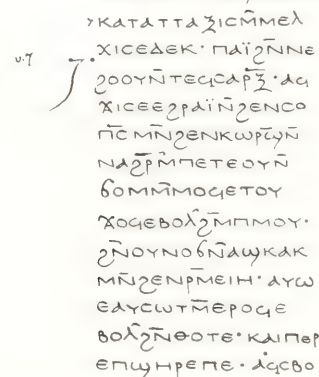 ›ⲕⲁⲧⲁⲧⲧⲁⲝⲓⲥⲙ̄ⲙⲉⲗ
v.7 ⲭⲓⲥⲉⲇⲉⲕ· ⲡⲁⲓ̈ϩⲛ̄ⲛⲉ
ϩⲟⲟⲩⲛ̄ⲧⲉϥⲥⲁⲣⲝ̄·ⲁϥ
ϫⲓⲥⲉⲉϩⲣⲁⲓ̈ⲛ̄ϩⲉⲛⲥⲟ
ⲡⲥ̄ⲙⲛ̄ϩⲉⲛⲕⲱⲣϣ̄ⲛ̄
ⲛⲁϩⲣⲙ̄ⲡⲉⲧⲉⲟⲩⲛ̄
ϭⲟⲙⲙ̄ⲙⲟϥⲉⲧⲟⲩ
ϫⲟϥⲉⲃⲟⲗϩⲙ̄ⲡⲙⲟⲩ·
ϩⲛ̄ⲟⲩⲛⲟϭⲛ̄ⲁϣⲕⲁⲕ
ⲙⲛ̄ϩⲉⲛⲣⲙ̄ⲉⲓⲏ· ⲁⲩⲱ
ⲉⲁⲩⲥⲱⲧⲙ̄ⲉⲣⲟϥⲉ
ⲃⲟⲗϩⲛ̄ⲑⲟⲧⲉ· ⲕⲁⲓⲡⲉⲣ
ⲉⲡϣⲏⲣⲉⲡⲉ· ⲁϥⲥⲃⲟ